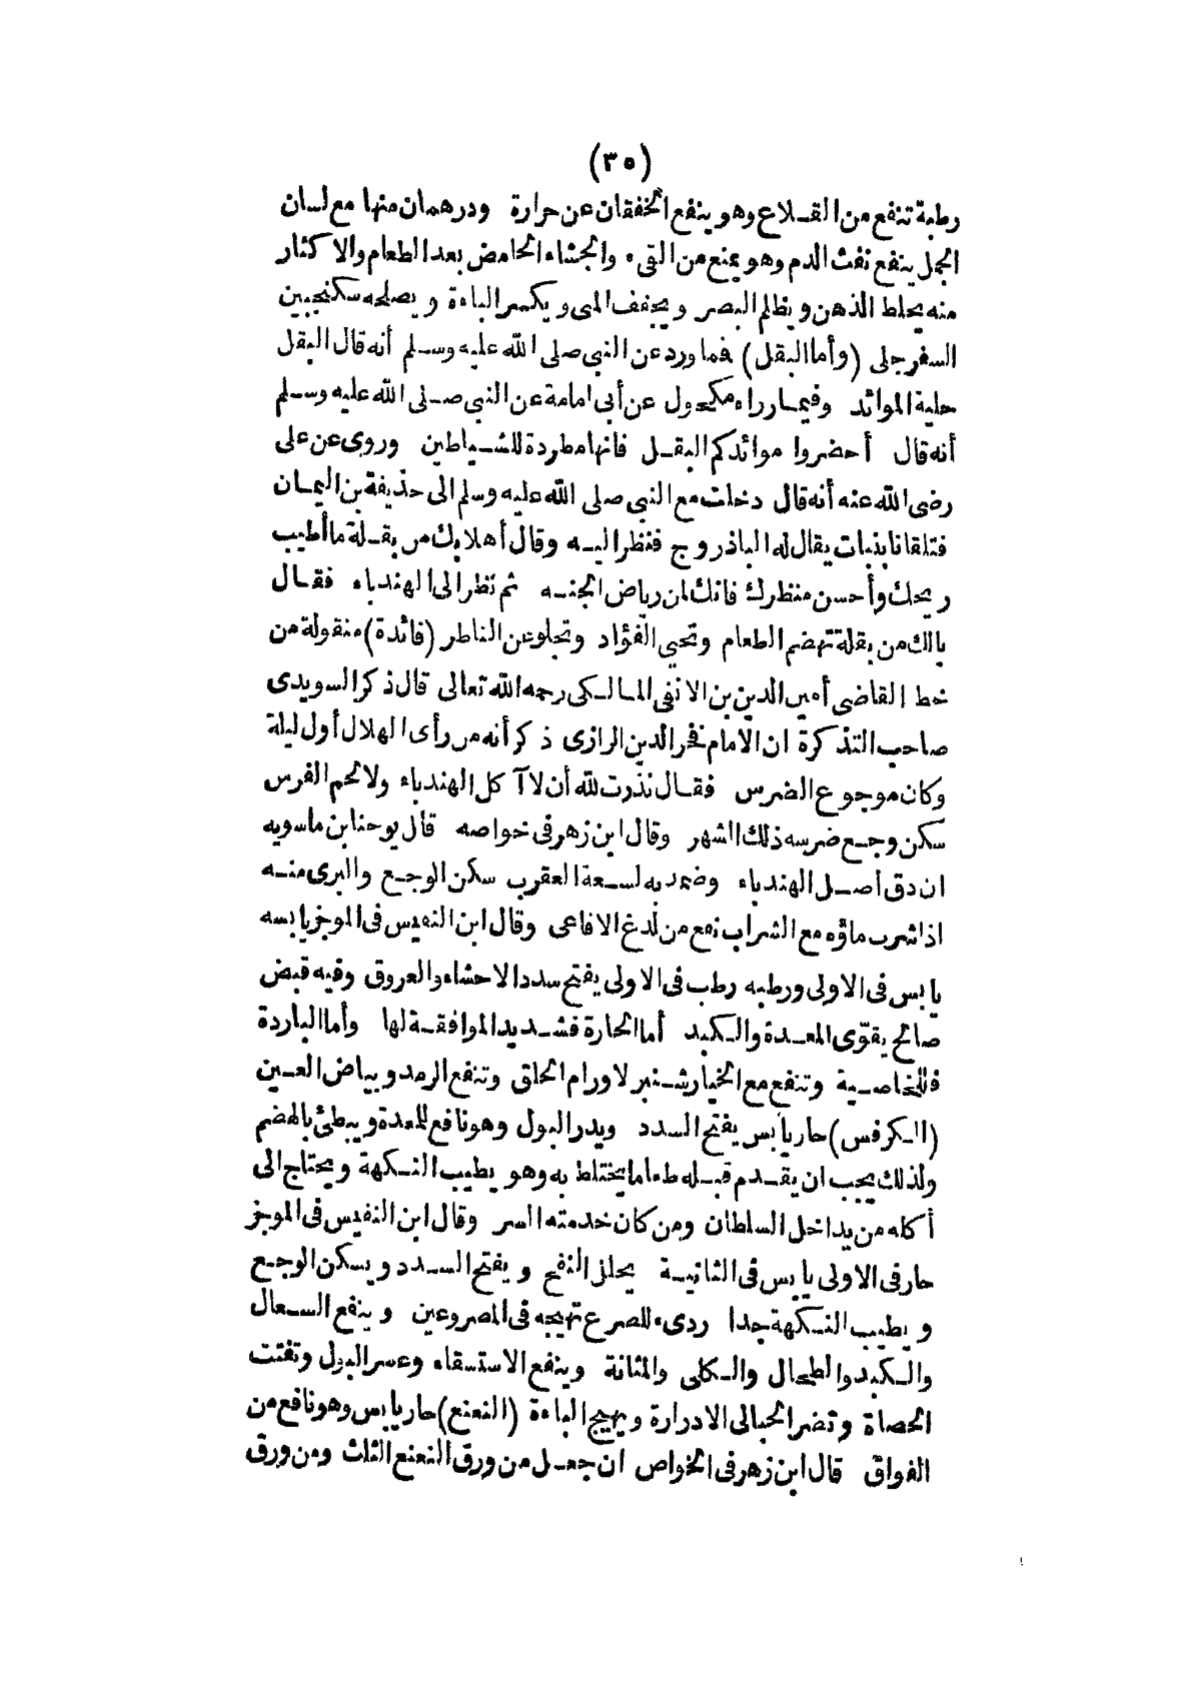 (٣٥)
رطبة تنفع من القلاع وهو ينفع الخفقان عن حرارة ودرهمان منها مع لسان
الجمل ينفع نفث الدم وهو يمنع من القيء والجشاء الحامض بعد الطعام والاكثار
منه يخلط الذهن ويظلم البصر ويجفف المنى ويكسر الباءة ويصلحه سكنجبين
السفرجلى (وأما البقل) فما ورد عن النبي صلى الله عليه وسلم أنه قال البقل
حلية الموائد وفيما رواه مكحول عن أبى امامة عن النبي صلى الله عليه وسلم
أنه قال أحضروا موائدكم البقل فانها مطردة للشياطين وروى عن على
رضى الله عنه أنه قال دخلت مع النبي صلى الله عليه وسلم الى حذيفة بن اليمان
فتلقانا بنبات يقال له الباذروج فنظر اليه وقال أهلا بك من بقلة ما أطيب
ريحك وأحسن منظرك فانك لمن رياض الجنه ثم نظر الى الهندباء فقال
يالك من بقلة تهضم الطعام وتحيى الفؤاد وتجلو عن الناظر (فائدة) منقولة من
خط القاضى أمين الدين بن الانفى المالكى رحمه الله تعالى قال ذكر السويدى
صاحب التذكرة ان الامام فخر الدين الرازى ذكر أنه من رأى الهلال أول ليلة
وكان موجوع الضرس فقال نذرت لله أن لا آكل الهندباء ولا لحم الفرس
سكن وجع ضرسه ذلك الشهر وقال ابن زهر فى خواصه قال يوحنا بن ماسويه
ان دق أصل الهندباء وضمد به لسعة العقرب سكن الوجع والبرى منه
اذا شرب ماؤه مع الشراب نفع من لدغ الافاعى وقال ابن النفيس فى الموجز يابسه
يابس فى الاولى ورطبه رطب فى الاولى يفتح سدد الاحشاء والعروق وفيه قبض
صالح يقوّى المعدة والكبد أما الحارة فشديد الموافقة لها وأما الباردة
فللخاصية وتنفع مع الخيار شنبر لاورام الحلق وتنفع الرمد وبياض العين
(الكرفس) حار يابس يفتح السدد ويدر البول وهو نافع للمعدة ويبطئ بالهضم
ولذلك يجب ان يقدم قبله طعاما يختلط به وهو يطيب النكهة ويحتاج الى
أكله من يداخل السلطان ومن كان خدمته السر وقال ابن النفيس فى الموجز
حار فى الاولى يابس فى الثانية يحلل النفخ ويفتح السدد ويسكن الوجع
ويطيب النكهة جدا ردىء للصرع تهيجه فى المصروعين وينفع السعال
والكبد والطحال والكلى والمثانة وينفع الاستسقاء وعسر البول وتفتت
الحصاة وتضر الحبالى الادرارة ويهيج الباءة (النعنع) حار يابس وهو نافع من
الفواق قال ابن زهر فى الخواص ان جعل من ورق النعنع الثلث ومن ورق